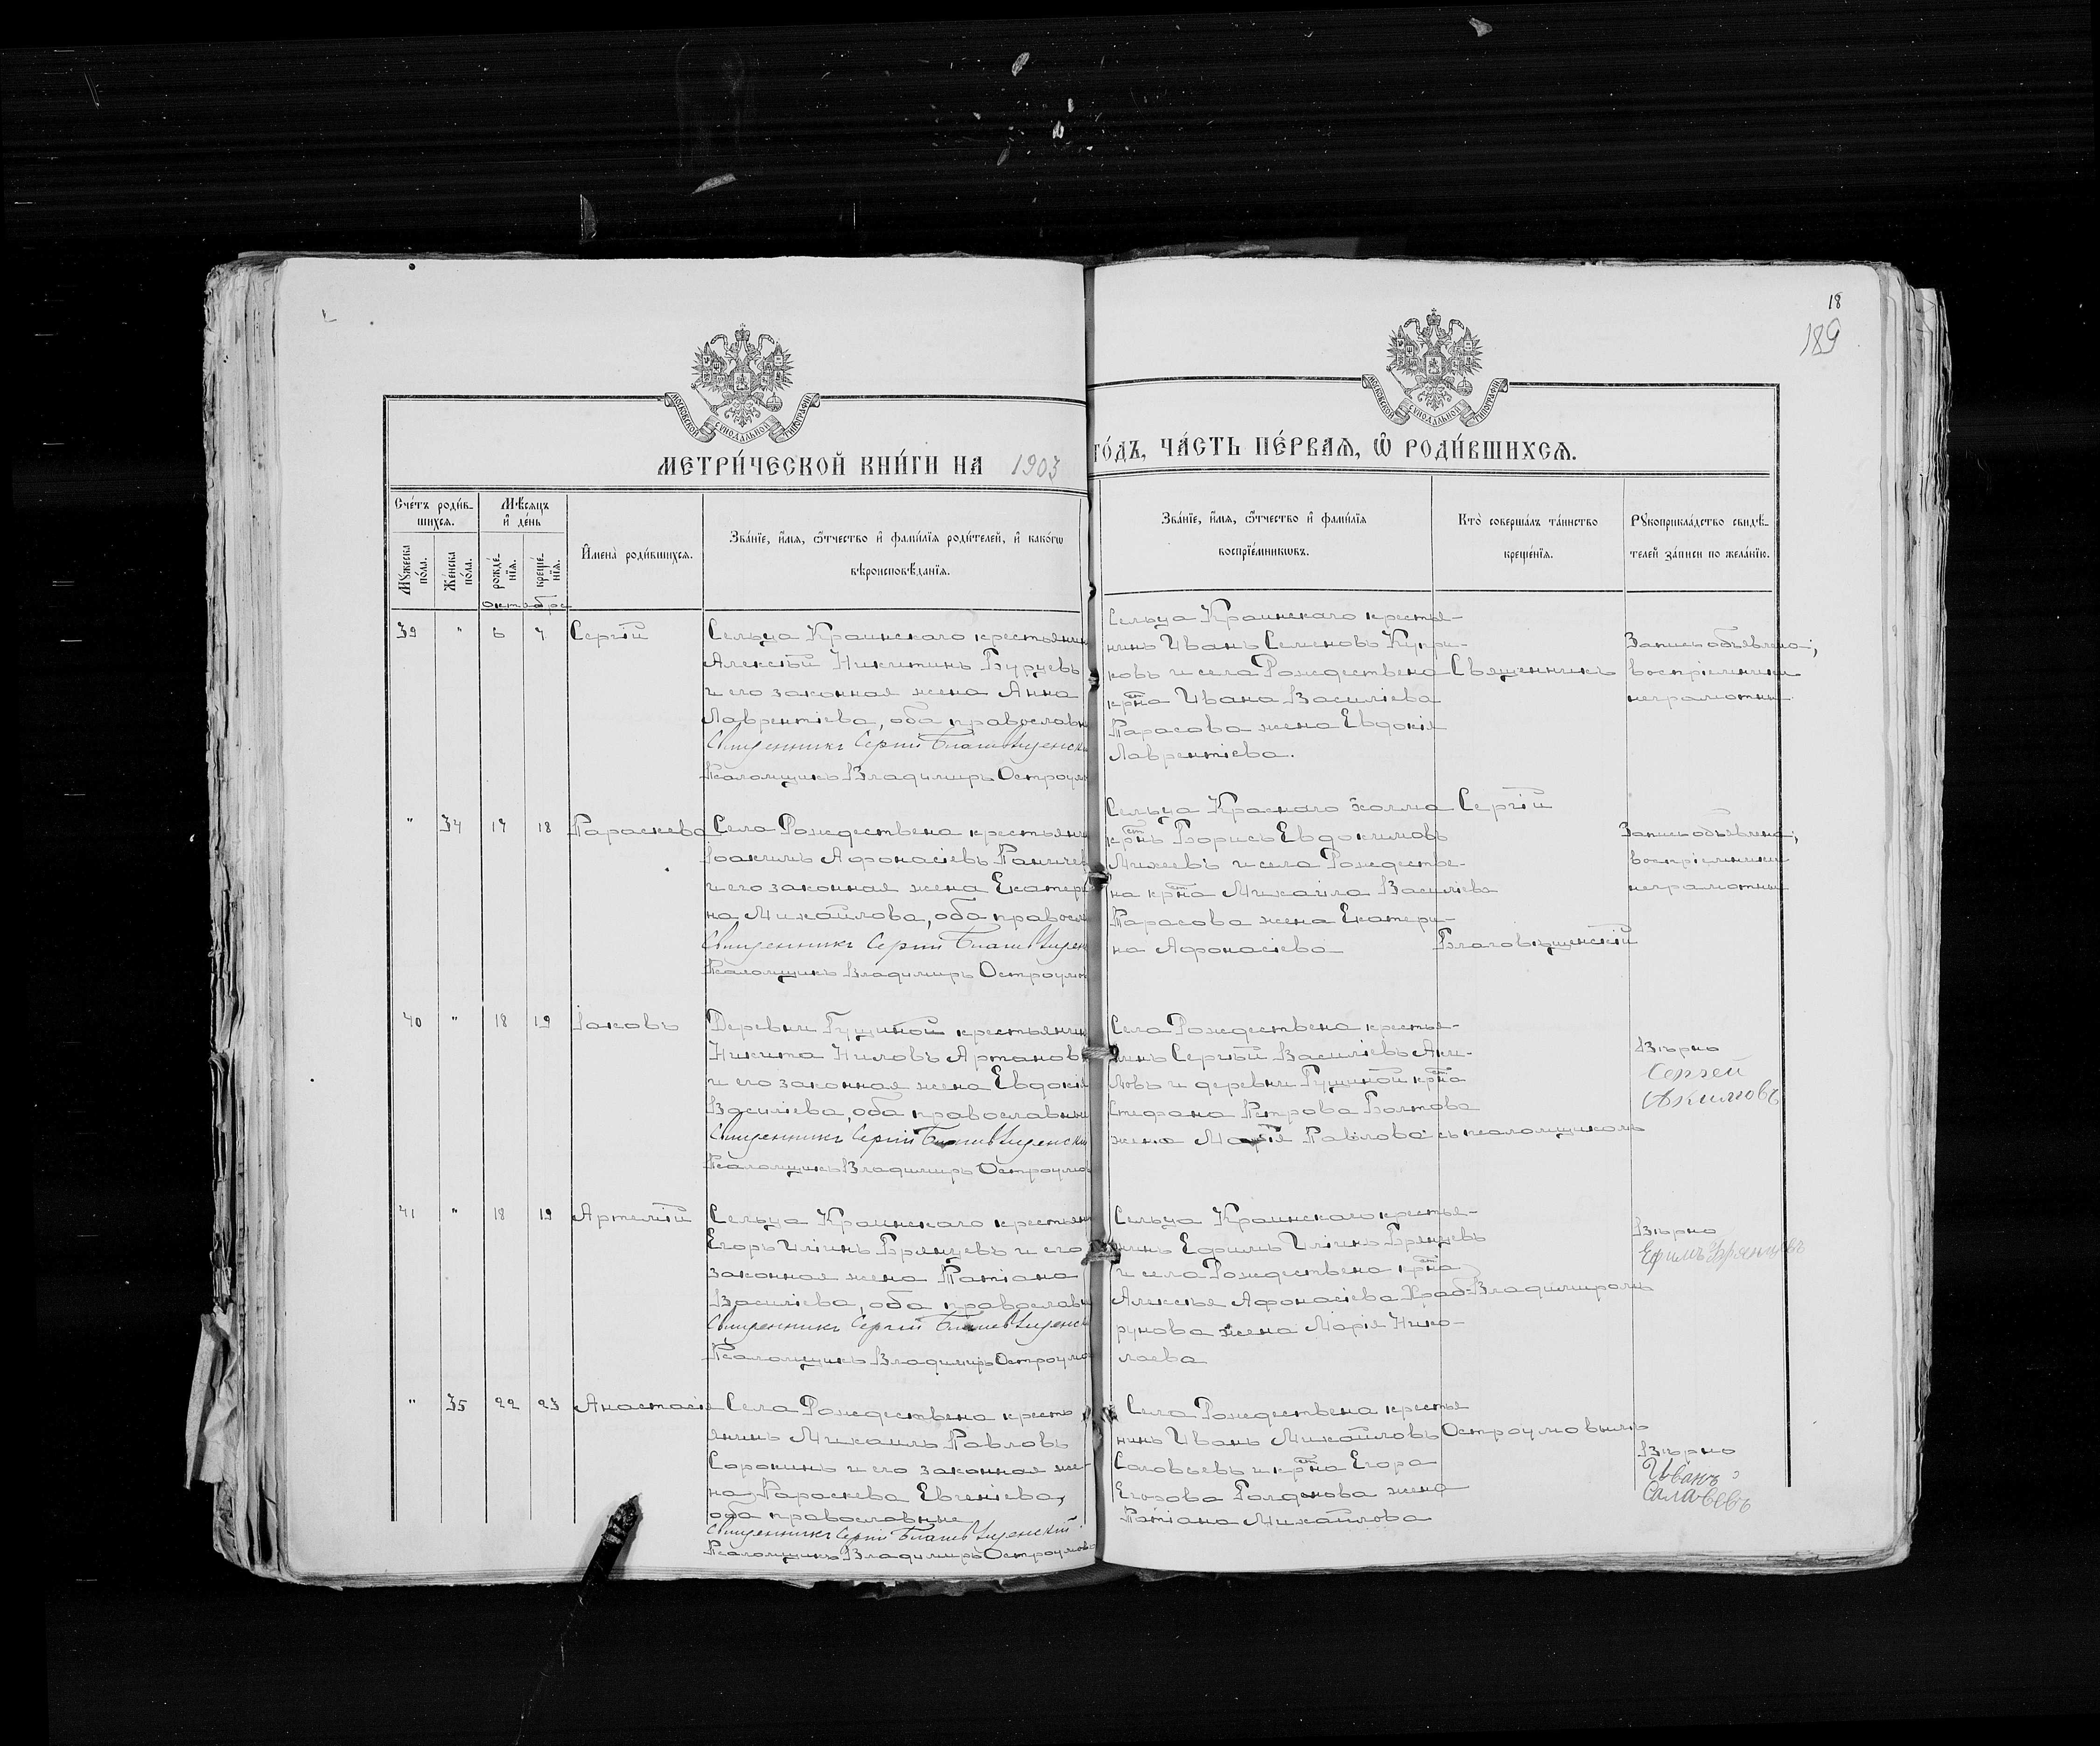 18
189
МОСКОВСКОЙ СѴНОДАЛЬНОЙ ТИПОГРАФІИ
МОСКОВСКОЙ СѴНОДАЛЬНОЙ ТИПОГРАФІИ
МЕТРИ́ЧЕСКОЙ КНИ́ГИ НА 1903
ГО́ДЪ, ЧА́СТЬ ПЕ́РВАѦ, Ѽ РОДИ́ВШИХСѦ.
Сче́тъ роди́в-
шихсѧ.
Мꙋжеска по́ла.
Же́нска по́ла.
Мѣ́сѧцъ
и҆ де́нь
рожде́-
нїѧ.
креще́-
нїѧ.
Октября
И҆мена̀ роди́вшихсѧ.
Зва́нїе, и҆́мѧ, ѻ҆́тчество и҆ фами́лїѧ роди́телей, и҆ како́гѡ
вѣроисповѣ́данїѧ.
Зва́нїе, и҆́мѧ, ѻ҆́тчество и҆ фами́лїѧ
воспрїе́мникѡвъ.
Кто̀ соверша́лъ та́инство
креще́нїѧ.
Рꙋкоприкла́дство свидѣ́-
телей за́писи по жела́нїю.
39 " 6 7 Сергій
Сельца Краинскаго крестьянин
Алексѣй Никитинъ Бурцевъ
и его законная жена Анна
Лаврентіева, оба православн
Священникъ Сергій Благовѣщенск
Псаломщикъ Владимиръ Остроум
Сельца Краинскаго крестья-
нинъ Иванъ Семеновъ Купри-
ковъ и села Рождествена
крна Ивана Василіева
Тарасова жена Евдокія
Лаврентіева.
Священникъ
Запись объявлена;
воспріемники
неграмотны
" 34 17 18 Параскева
Села Рождествена крестьянин
Іоакимъ Афонасіевъ Паничев
и его законная жена Екатери
на Михайлова, оба правосл
Священникъ Сергій Благовѣщен
Псаломщикъ Владимиръ Остроумо
Сельца Краснаго холма
крнъ Борисъ Евдокимовъ
Михеевъ и села Рождестве-
на крна Михаила Василіева
Тарасова жена Екатери-
на Афонасіева
Сергій
Благовѣщенскій
Запись объявлена;
воспріемники
неграмотны
40 " 18 19 Іаковъ
Деревни Гущиной крестьянин
Никита Ниловъ Артанов
и его законная жена Евдокія
Василіева, оба православны
Священникъ Сергій Благовѣщенскій
Псаломщикъ Владимиръ Остроумов
Села Рождествена крестья-
нинъ Сергѣй Василіевъ Аки-
мовъ и деревни Гущиной крна
Стефана Петрова Болтова
жена Марія Павлова
съ псаломщикомъ
Вѣрно
Сергей
Акимовъ
41 " 18 19 Артемій
Сельца Краинскаго крестьян
Егоръ Иліинъ Брянцевъ и его
законная жена Татіана
Василіева, оба православн
Священникъ Сергій Благовѣщенск
Псаломщикъ Владимиръ Остроумов
Сельца Краинскаго крестья-
нинъ Ефимъ Иліинъ Брянцевъ
и села Рождествена крна
Алексѣя Афонасіева Храб-
рунова жена Марія Нико-
лаева
Владимиромъ
Вѣрно
Ефимъ Брянцевъ
" 35 22 23 Анастасія
Села Рождествена кресть
янинъ Михаилъ Павловъ
Сорокинъ и его законная же-
на Параскева Евгеніева,
оба православные
Священникъ Сергій Благовѣщенскій
Псаломщикъ Владимиръ Остроумовъ
Села Рождествена крестья
нинъ Иванъ Михайловъ
Соловьевъ и крна Егора
Егорова Голденова жена
Татіана Михайлова
Остроумовымъ
Вѣрно
Иванъ
Салавевъ